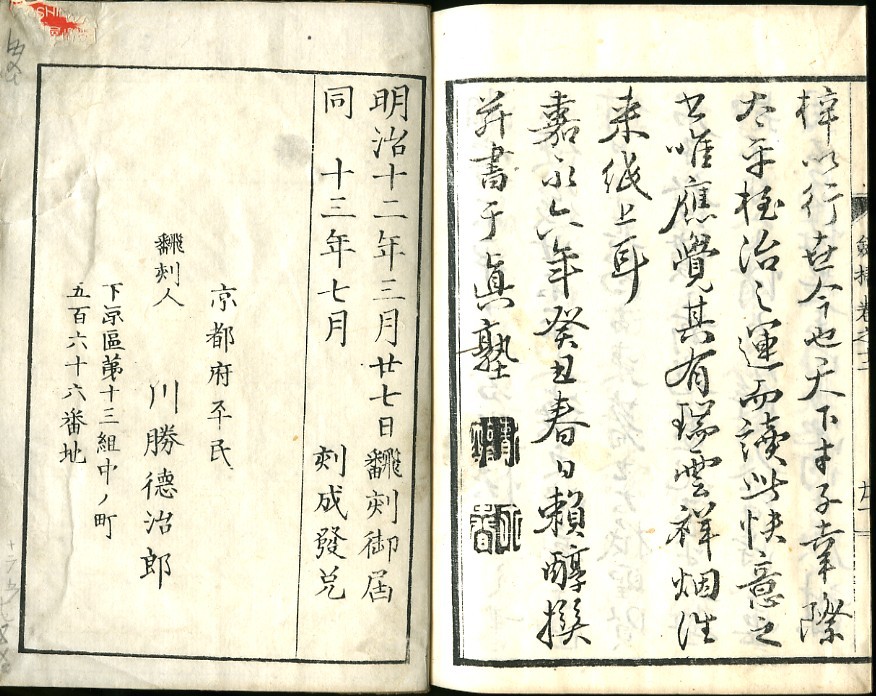 梓以行世今也天下才子幸際
太平極治之運而讀此快意之
書唯應覺其有瑞雲祥烟往
来紙上耳
嘉永六年癸丑春日賴醇撰
并書于真塾
卷之三
明治十二年三月廿七日飜刻御届
同 十三年七月 刻成發兌
京都府平民
飜刻人 川勝德治郎
下京區第十三組中ノ町
五百六十六番地